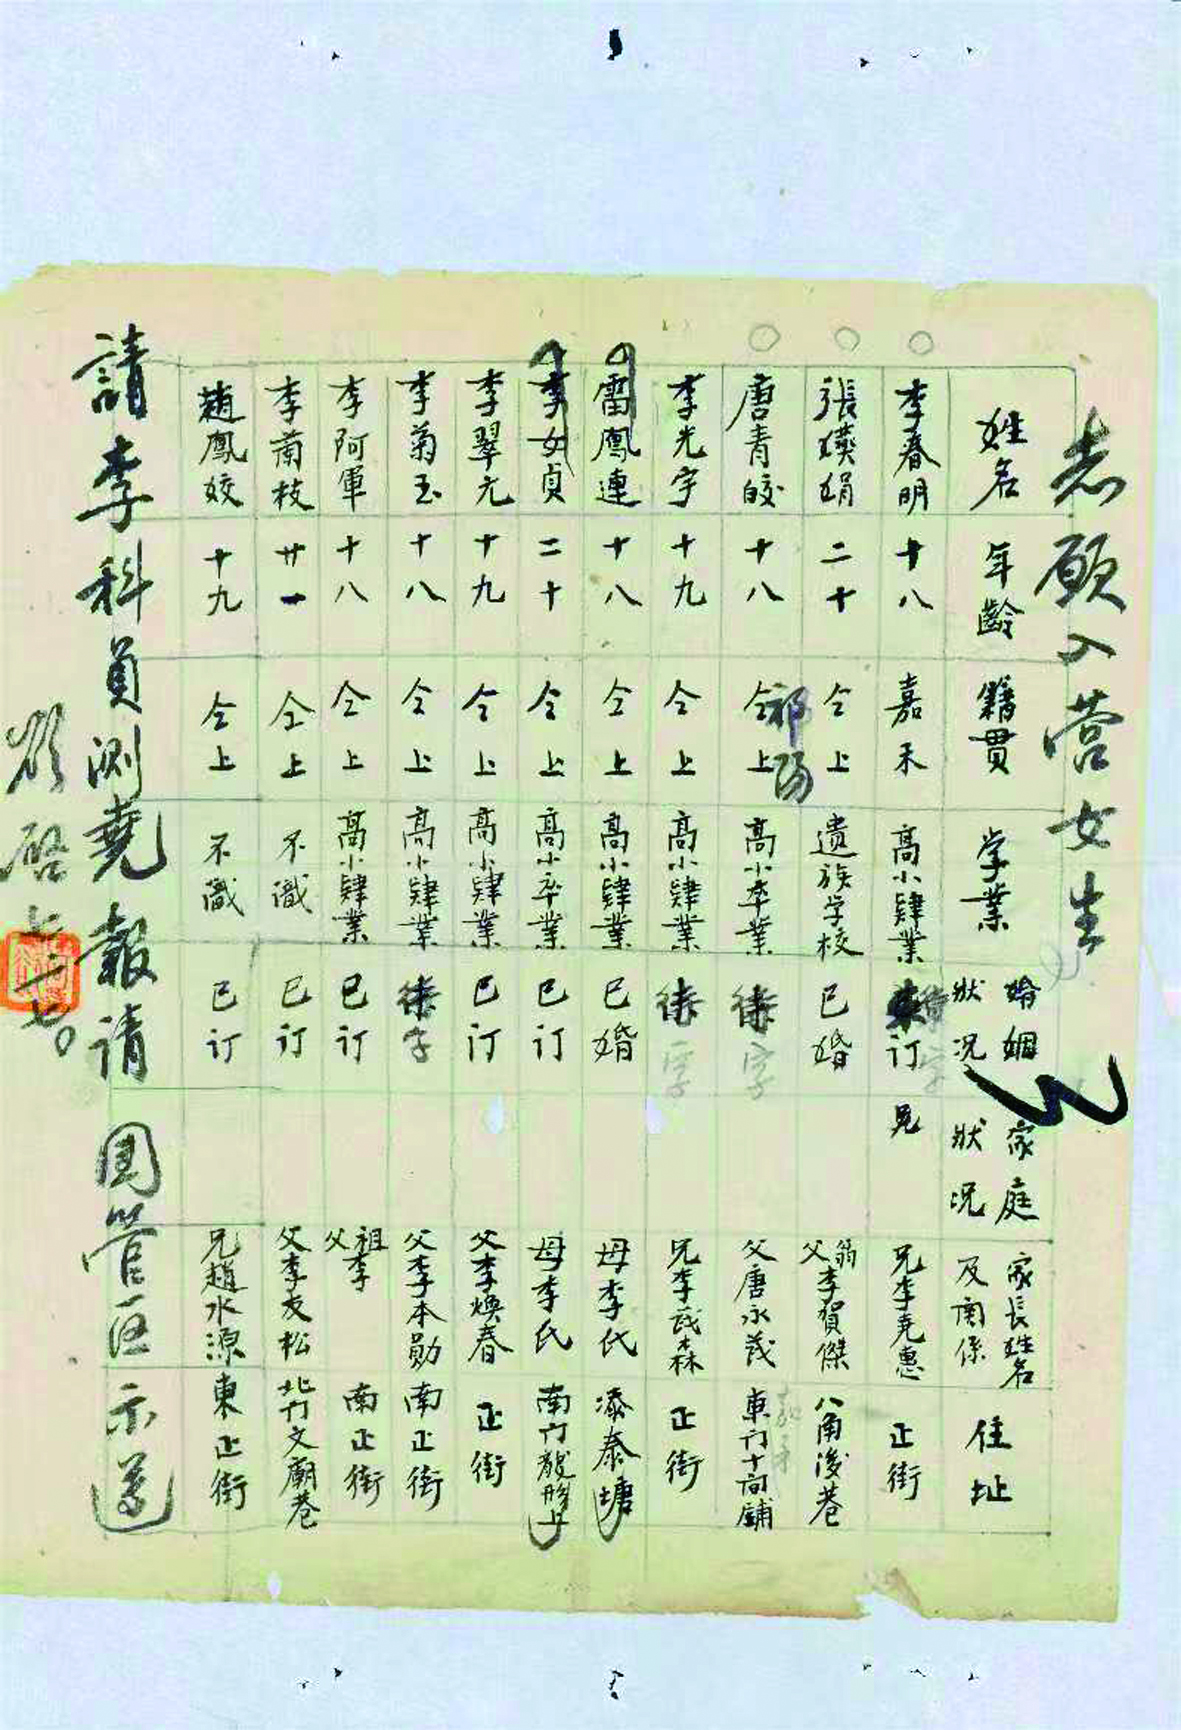 志願入营女生
姓名 年齡 籍貫 学業 婚姻狀况 家庭狀况 家長姓名及関係 住址
李春明 十八 嘉禾 高小肄業 訂 兄 兄李克惠 正街
張媖娟 二十 仝上 遗族学校 已婚 翁父李賀傑 八角浚巷
唐青皎 十八 仝上 祁陽 高小卒業 待字 父唐永茂 東门十间鋪
李光宇 十九 仝上 高小肄業 待字 兄李茂森 正街
雷鳳連 十八 仝上 高小肄業 已婚 母李氏 添泰塘
李女貞 二十 仝上 高小卒業 已订 母李氏 南门龍形上
李翠元 十九 仝上 高小肄業 已订 父李煥春 正街
李菊玉 十八 仝上 高小肄業 待字 父李本勛 南正街
李阿軍 十八 仝上 高小肄業 已订 祖父李 南正街
李蘭枝 廿一 仝上 不識 已订 父李友松 北门文廟巷
趙鳳姣 十九 仝上 不識 已订 兄趙水源 東正街
請李科員測堯報请 團管区示遵
啓 七 二七。